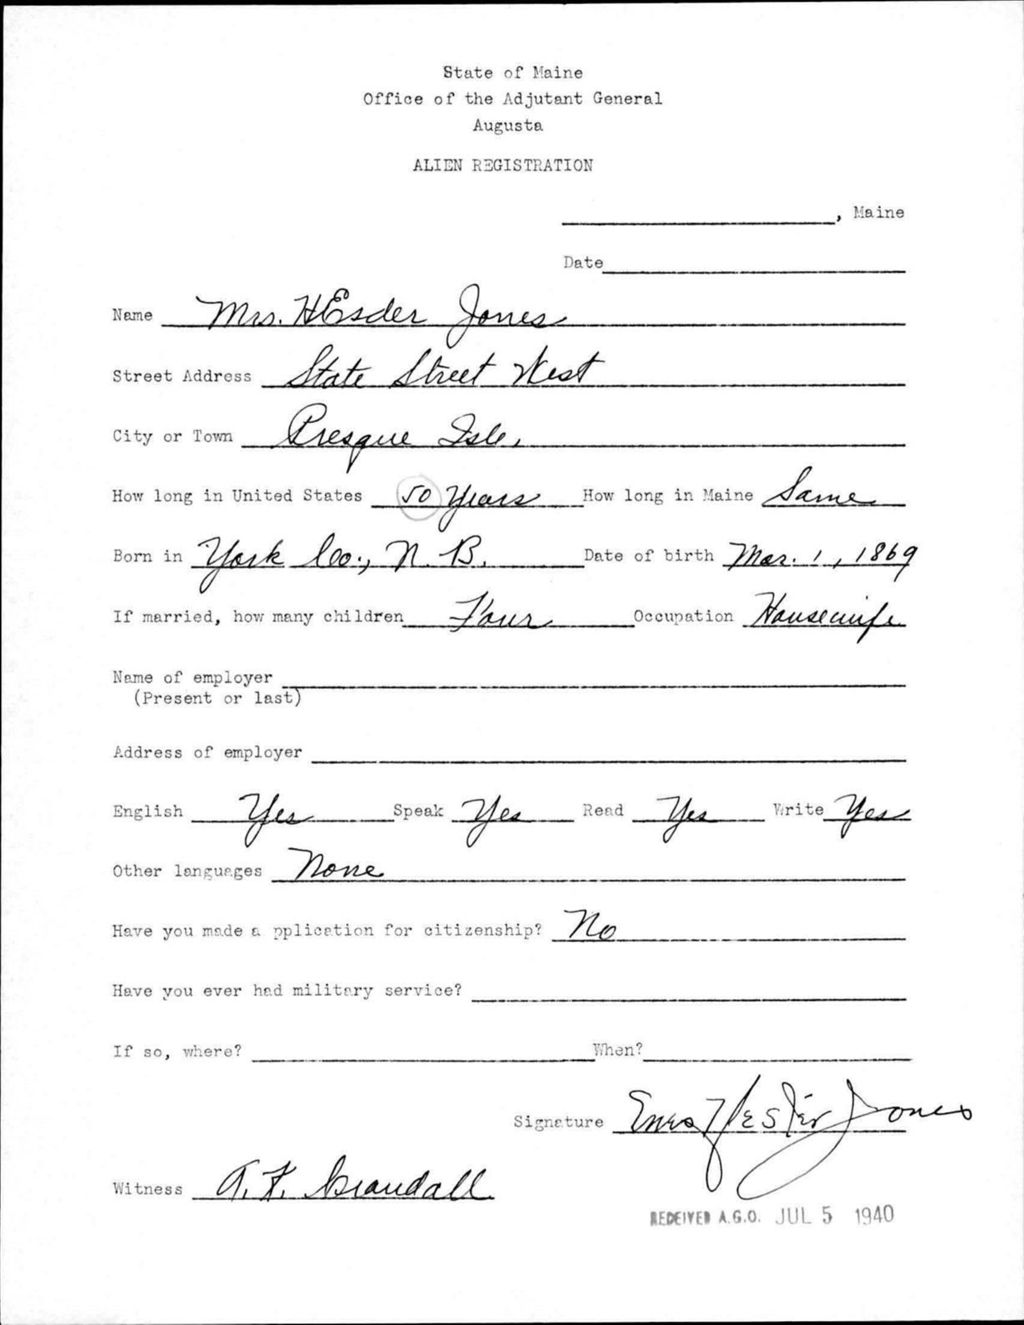 State of Maine
Office of the Adjutant General
Augusta
ALIEN REGISTRATION
, Maine
Date
Name Mrs. HEsder Jones
Street Address State Street West
City or Town Presque Isle,
How long in United States 50 Years How long in Maine Same
Born in York Co., N. B. Date of birth Mar. 1, 1869
If married, how many children Four Occupation Housewife
Name of employer
(Present or last)
Address of employer
English Yes Speak Yes Read Yes Write Yes
Other languages None
Have you made a pplication for citizenship? No
Have you ever had military service?
If so, where? When?
Signature Jones
Witness A. F. Crandall
RECEIVED A.G.O. JUL 5 1940